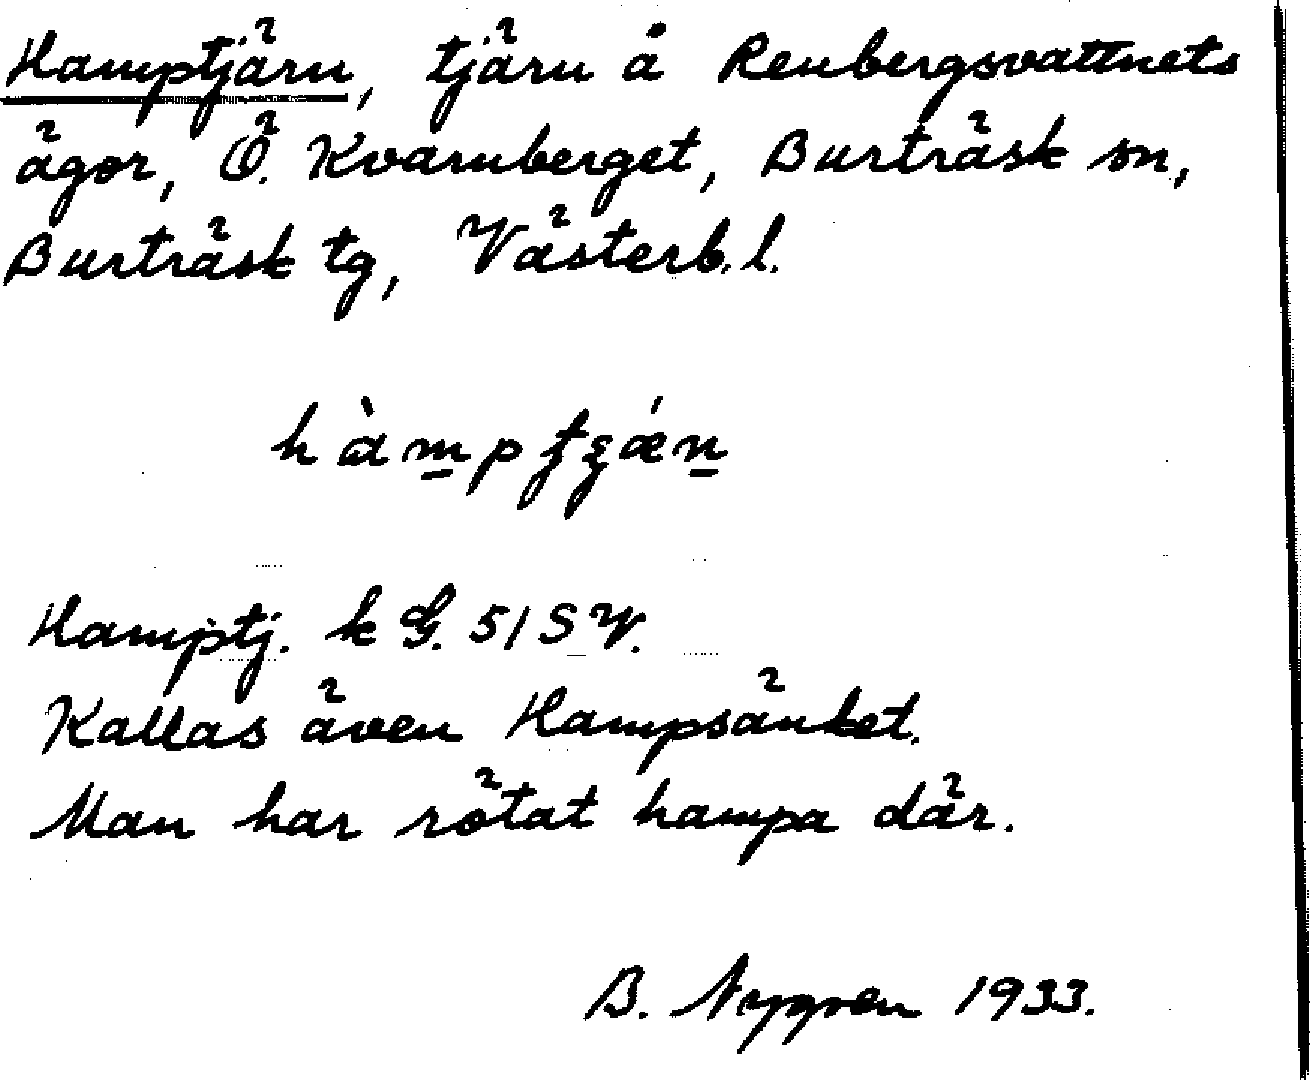 Hamptjärn, tjärn å Renbergsvattnets
ägor, Ö. Kvarnberget, Burträsk sn,
Burträsk tg, Västerb. l.
Hamptj. k G. 51 SV.
Kallas även Hampsänket.
Man har rötat hampa där.
B. Nygren 1933.